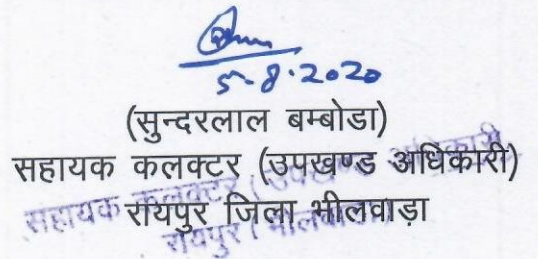 5-8-2020
(सुन्दरलाल बम्बोडा)
सहायक कलक्टर (उपखण्ड अधिकारी)
रायपुर जिला भीलवाड़ा
सहायक कलक्टर (उपखण्ड अधिकारी)
रायपुर (भीलवाड़ा)